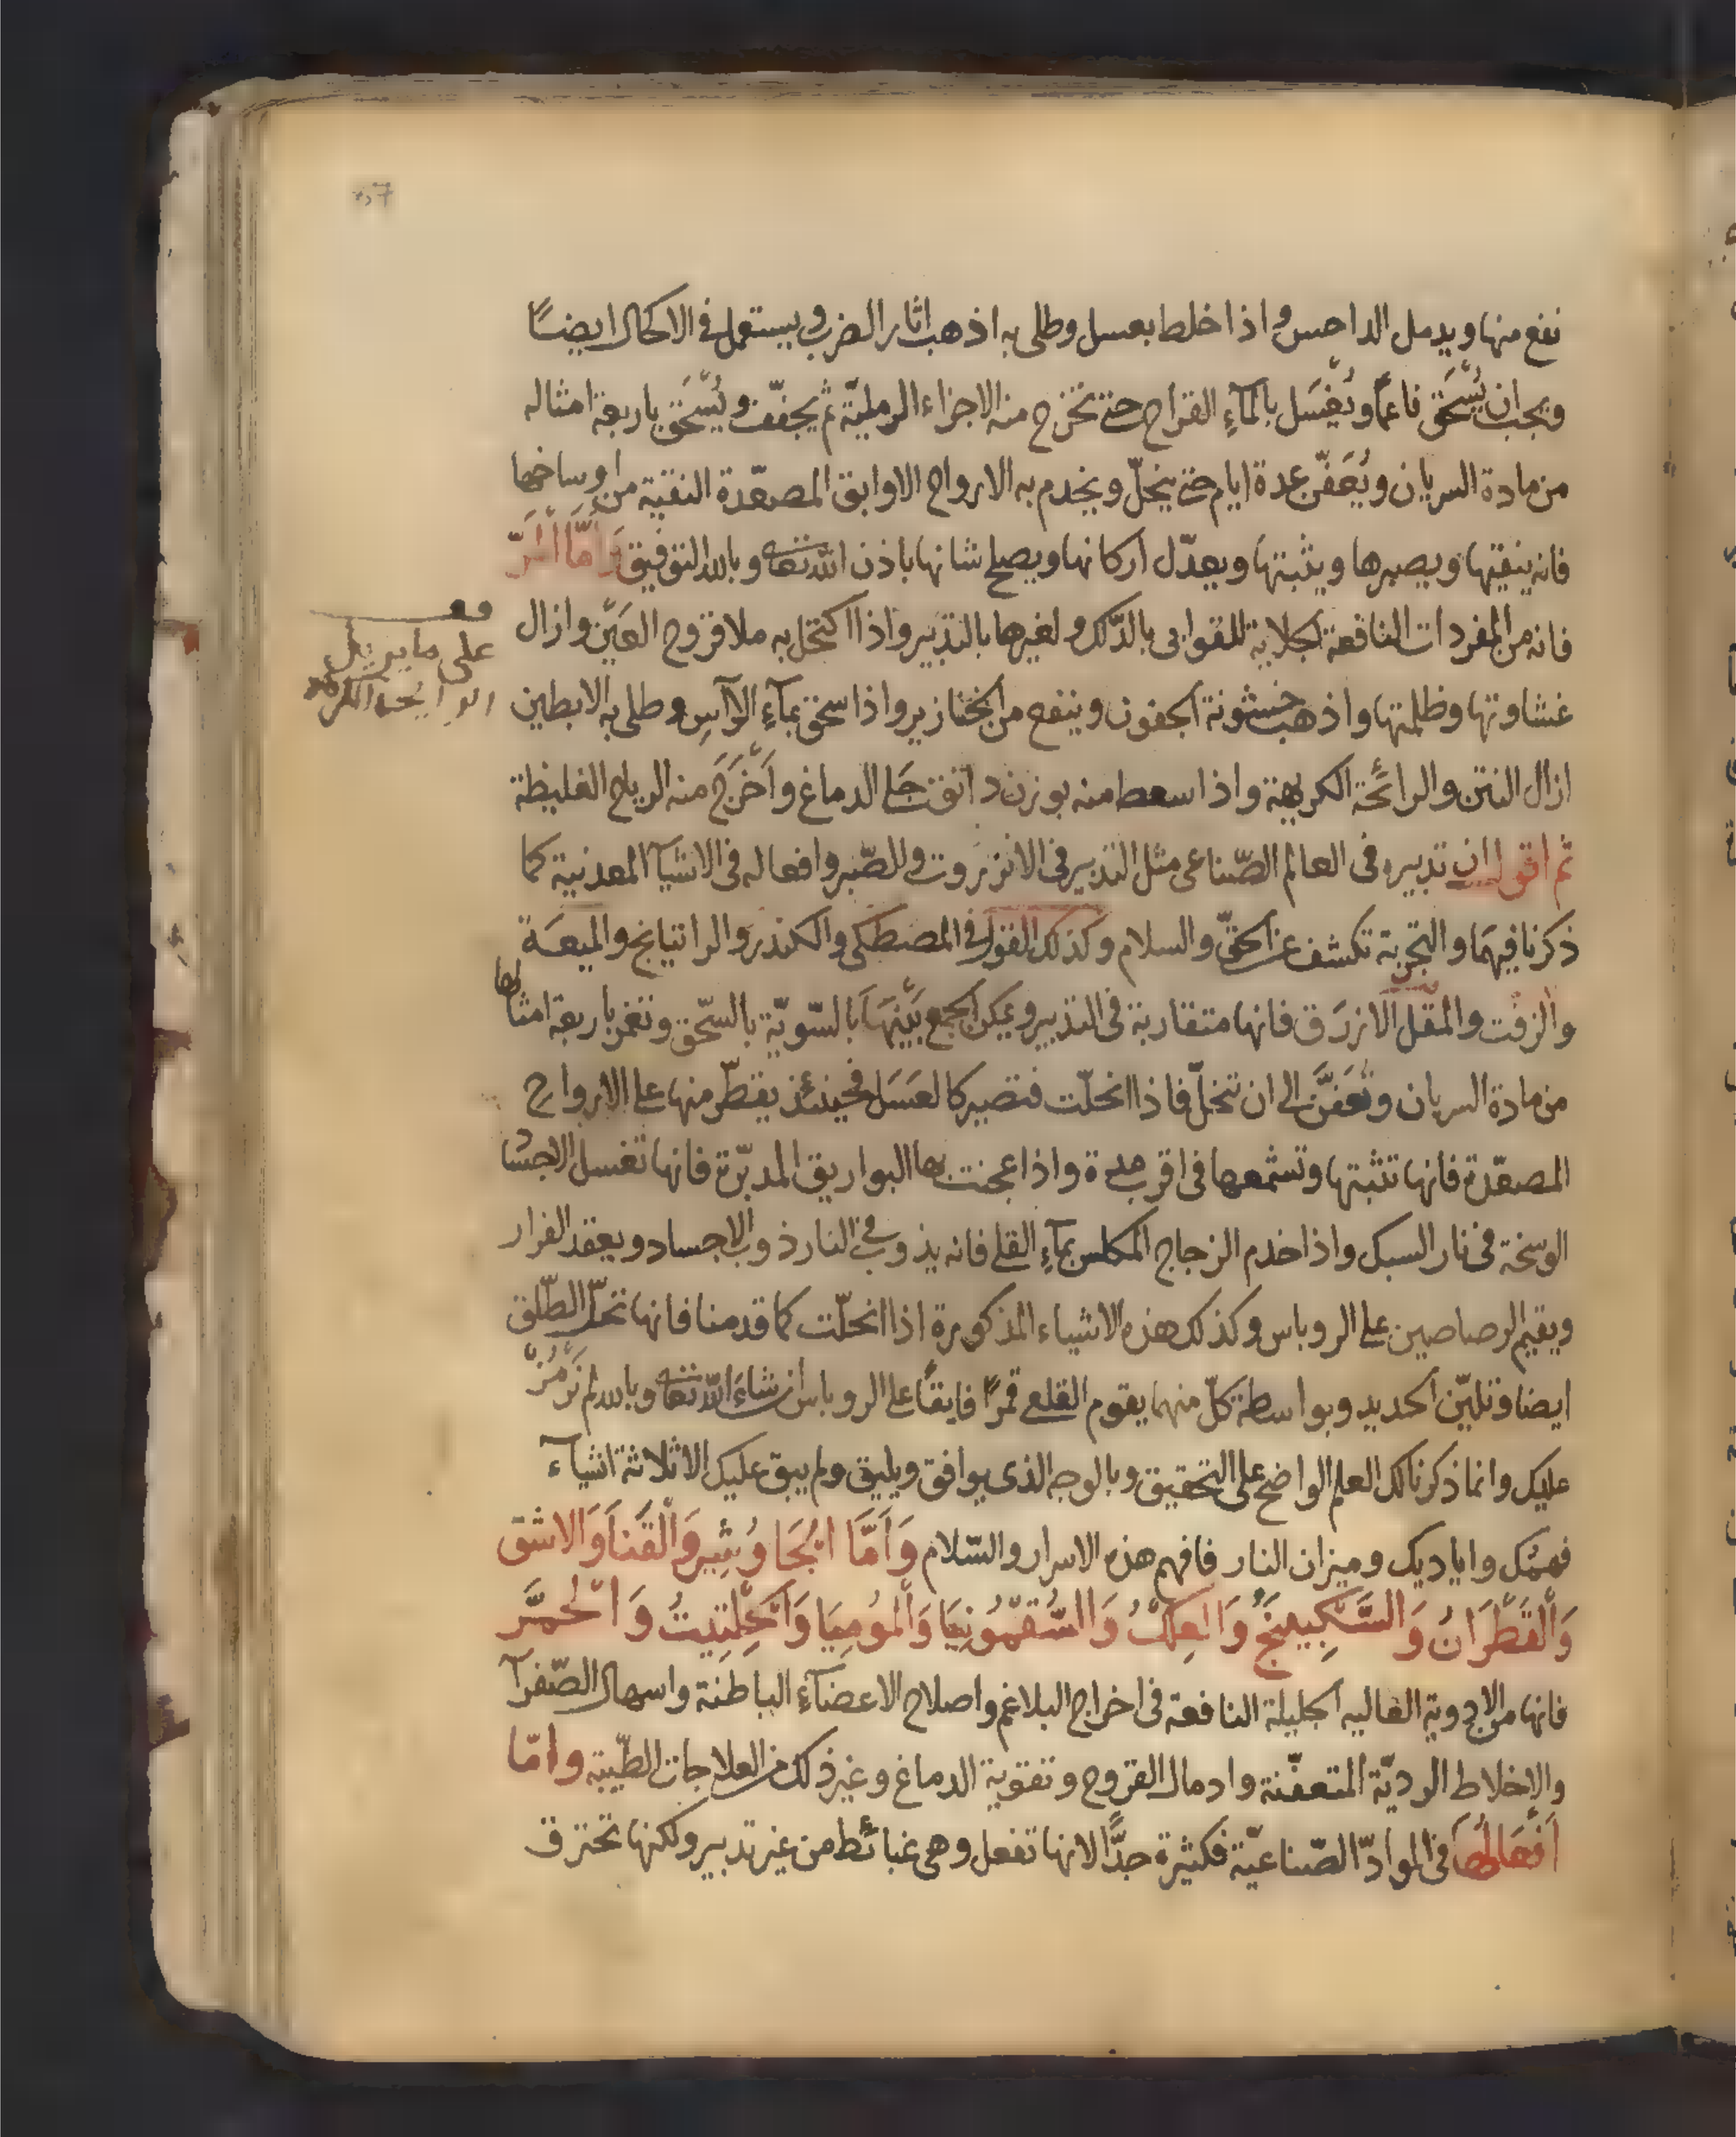 نفع منها ويدمل الداحس واذا خلط بعسل وطلى به اذهب اثار الضرب ويستعمل في الاكحال ايضًا
ويجب ان يُسْحَق ناعمًا ويُغْسَل بالمآءِ القراح حتى تخرج منه الاجزاء الرمليّة ثم يجفّف ويُسْحَق باربعة امثاله
من مادة السريان ويُعَفّن عدة ايام حتى ينحلّ ويخدم به الارواح الاوابق المصعّدة النقية من اوساخها
فانه ينقيتها ويصبرها ويثبتها ويعدّل اركانها ويصلح شانها باذن الله تعا وبالله التوفيق وَأمَّا المُرّ
فانه من المفردات النافعة الجلاية للقوابى بالدّلك ولغيرها بالتدبير واذا اكتحل به ملا قروح العَين وازال
غشاوتها وظلمتها واذهب خشونة الجفون وينفع من الخنازير واذا سحق بمآءِ الآس وطلى به الابطين
ازال النتن والرائحة الكريهة واذا سعط منه بوزن دانق جَلى الدماغ واَخْرَج منه الرياح الغليظة
ثم اقول ان تدبيره فى العالم الصّناعى مثل التدبير فى الانزروت والصّبر وافعاله فى الاشيآ المعدنية كما
ذكرنا فيهما والتجربة تكشف عن الحقّ والسلام وكذلك القول فى المصطكى والكندر والراتيانج والميعَة
والزفت والمقل الازرَق فانها متقاربة فى التدبير ويمكن الجمع بَيْنهَا بالسّويّة بالسّحق وتغمر باربعة امثالها
من مادة السريان وتُعَفَّن الى ان تنحلّ فاذا انحلّت فتصير كالعَسَل فحينئذ يقطّر منها على الارواح
المصعّدة فانها تثبتها وتشمعها فى اقرب مدة واذا عجنت بها البواريق المدبّرة فانها تغسل الاجسا
الوسخة فى نار السبك واذا خدم الزجاج المكلس بمآءِ القلى فانه يذوب فى النار ذوب الاجساد ويعقد الفرار
ويقيم الرصاصين على الروباس وكذلك هذه الاشياء المذكورة اذا انحلّت كما قدمنا فانها تحلّ الطّلق
ايضا وتليّن الحديد وبواسطة كلّ منهما يقوم القلعى قمرًا فايقًا على الروباس ان شاءَ الله تعا وبالله لم نَرْمُزْ
عليك وانما ذكرنا لك العلم الواضح على التحقيق وبالوجه الذى يوافق ويليق ولم يبق عليك الا ثلاثة اشيآء
فهمُك واياديك وميزان النار فافهم هذه الاسرار والسّلام وَاَمَّا الجَاوُشِير وَالْقَنَا وَالاشق
وَالْقَطْرَانُ وَالسَّكبِينَجُ وَالعِلكُ وَالسُّقمُونِيَا وَالْمُومِيَا وَالْحِلْتِيتُ وَالْحُمَّر
فانها من الادوية الغاليه الجليلة النافعة فى اخراج البلاغم واصلاح الاعضآءِ الباطنة واسهال الصّفرآ
والاخلاط الرديّة المتعفّنة وادمال القروح وتقوية الدماغ وغير ذلك من العلاجات الطّبيّه وامّا
اَفْعَالُها فى الموادّ الصّناعيّة فكثيرة جدًّا لانها تفعل وهى غبائط من غير تدبير ولكنها تحترق
على ما يزيل
الرايحة الكرهه